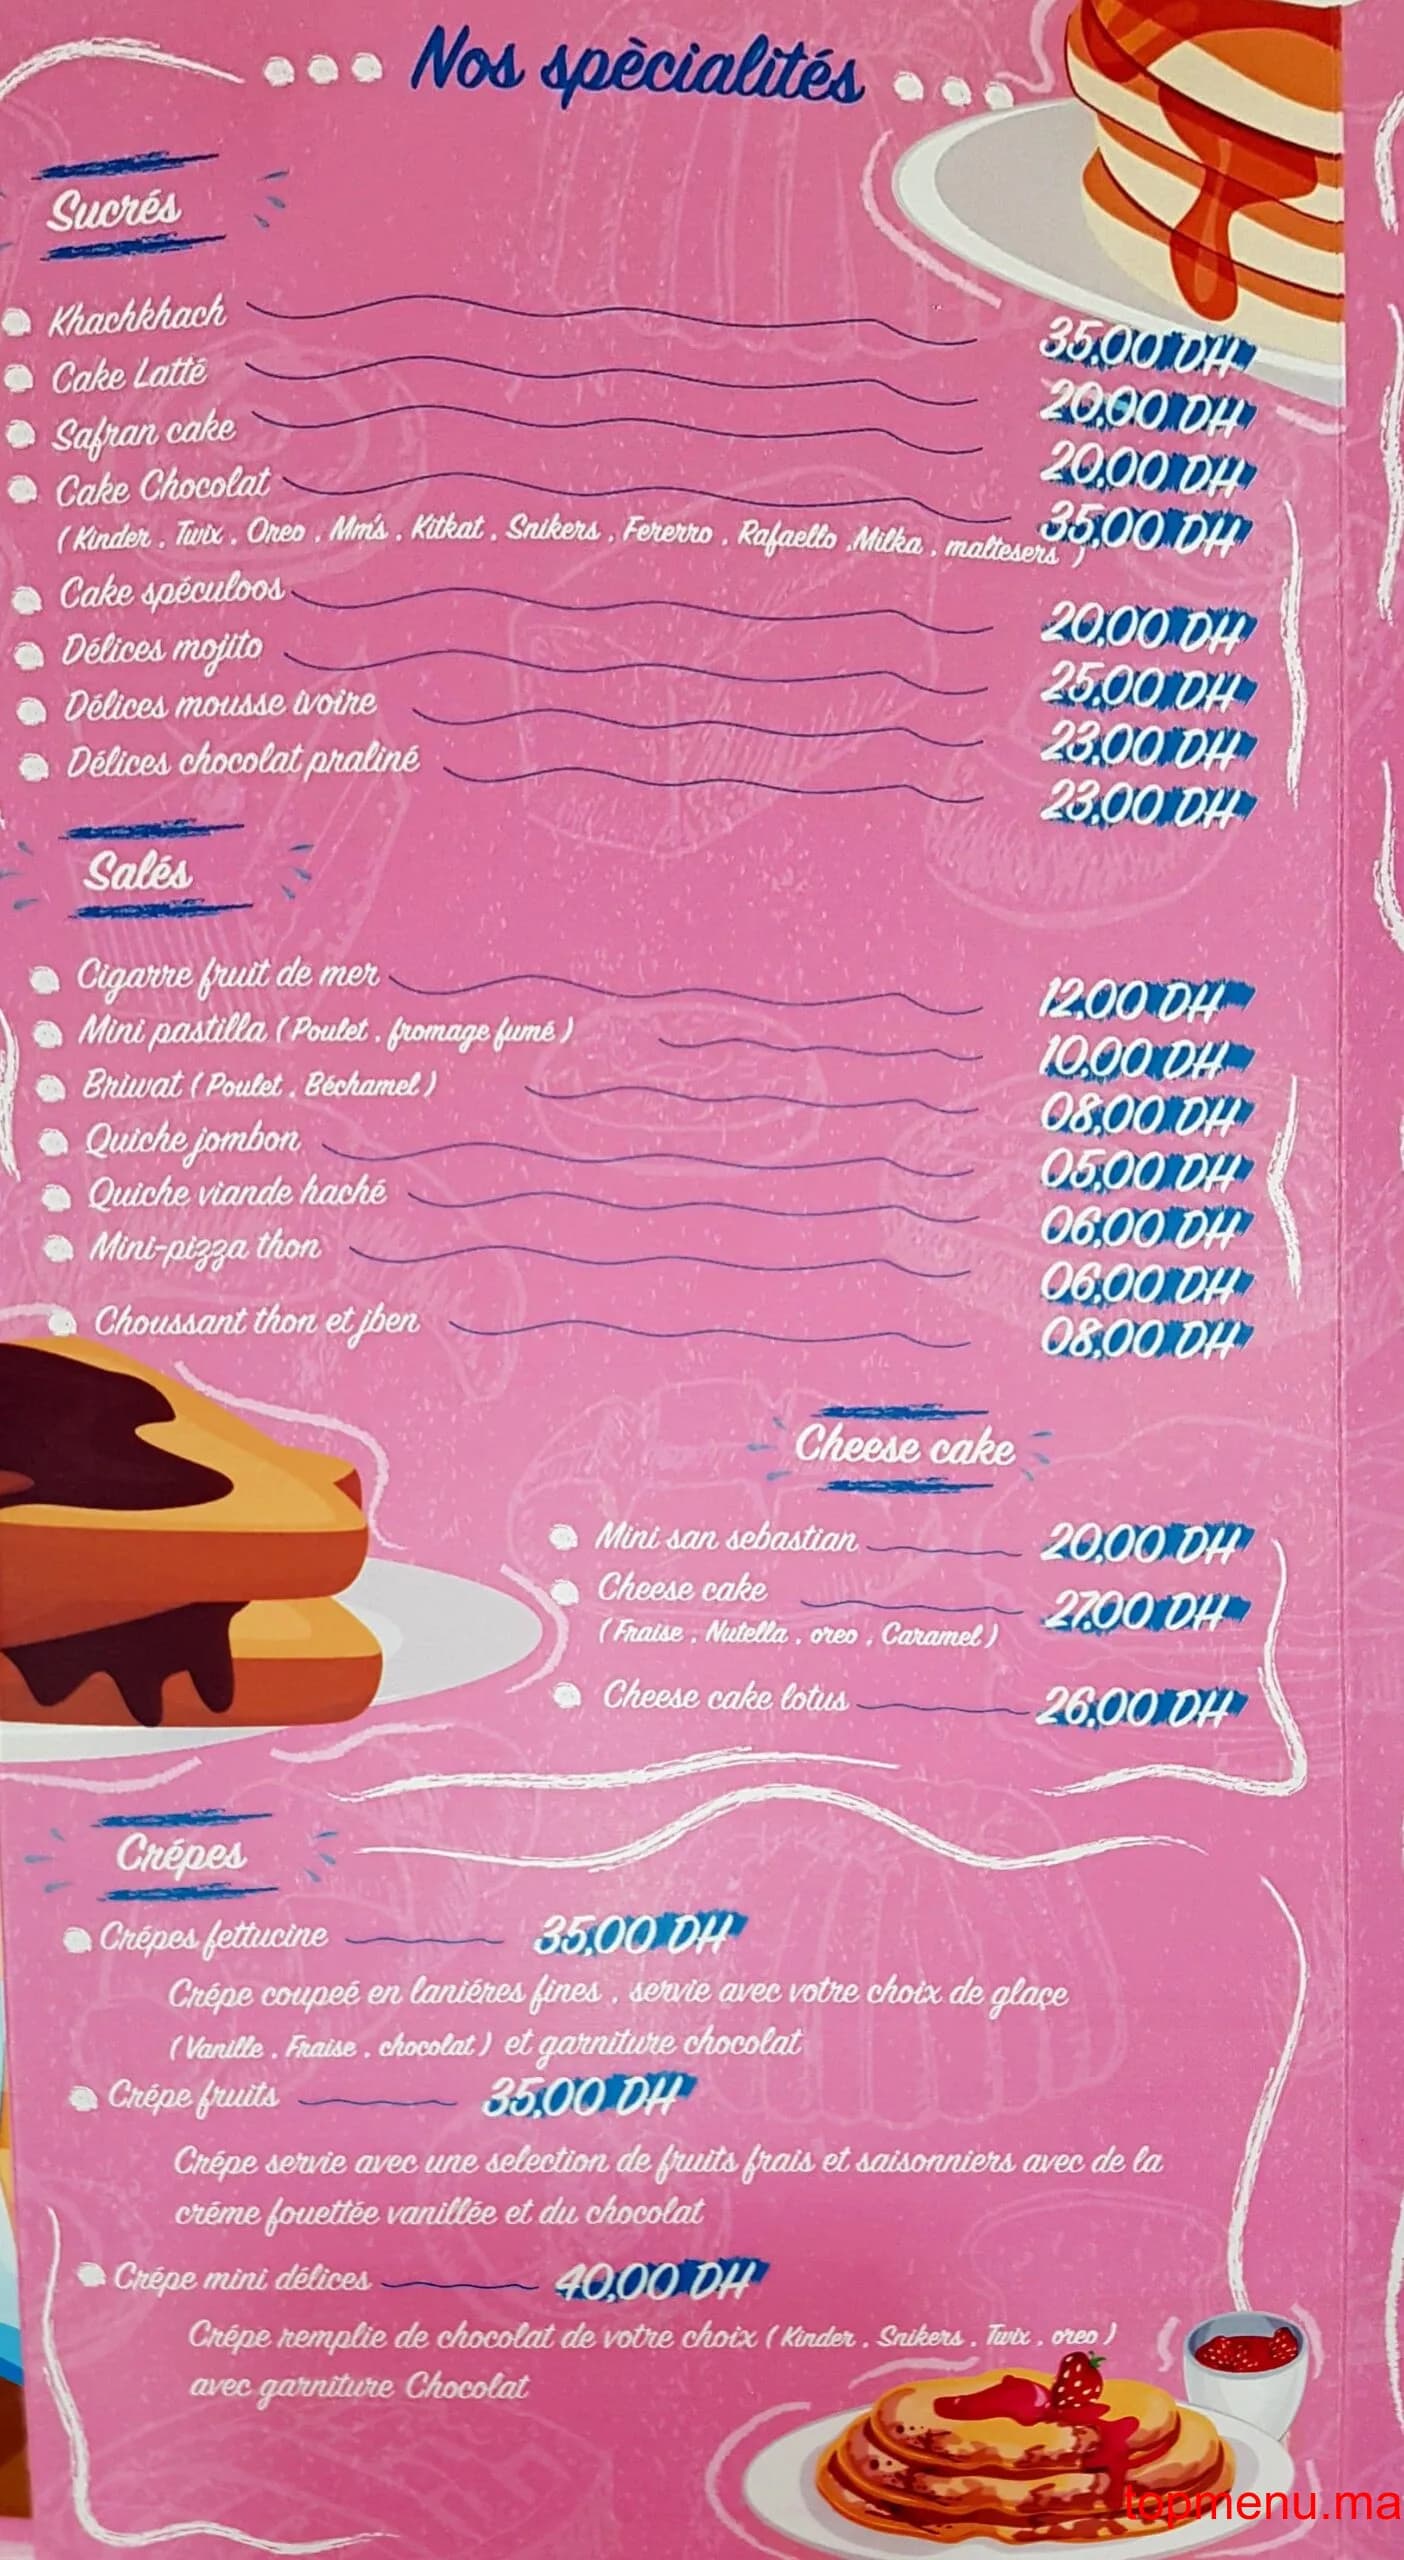 Nos spècialités
Sucrés
Khachkhach 35,00 DH
Cake Latté 20,00 DH
Safran cake 20,00 DH
Cake Chocolat 35,00 DH
( Kinder , Twix , Oreo , Mm's , Kitkat , Snikers , Fererro , Rafaello ,Milka , maltesers )
Cake spéculoos 20,00 DH
Délices mojito 25,00 DH
Délices mousse ivoire 23,00 DH
Délices chocolat praliné 23,00 DH
Salés
Cigarre fruit de mer 12,00 DH
Mini pastilla ( Poulet , fromage fumé ) 10,00 DH
Briwat ( Poulet , Béchamel ) 08,00 DH
Quiche jombon 05,00 DH
Quiche viande haché 06,00 DH
Mini-pizza thon 06,00 DH
Choussant thon et jben 08,00 DH
Cheese cake
Mini san sebastian 20,00 DH
Cheese cake 27,00 DH
( Fraise , Nutella , oreo , Caramel )
Cheese cake lotus 26,00 DH
Crépes
Crépes fettucine 35,00 DH
Crépe coupeé en laniéres fines , servie avec votre choix de glaçe
( Vanille , Fraise , chocolat ) et garniture chocolat
Crépe fruits 35,00 DH
Crépe servie avec une selection de fruits frais et saisonniers avec de la
créme fouettée vanillée et du chocolat
Crépe mini délices 40,00 DH
Crépe remplie de chocolat de votre choix ( Kinder , Snikers , Twix , oreo )
avec garniture Chocolat
topmenu.ma